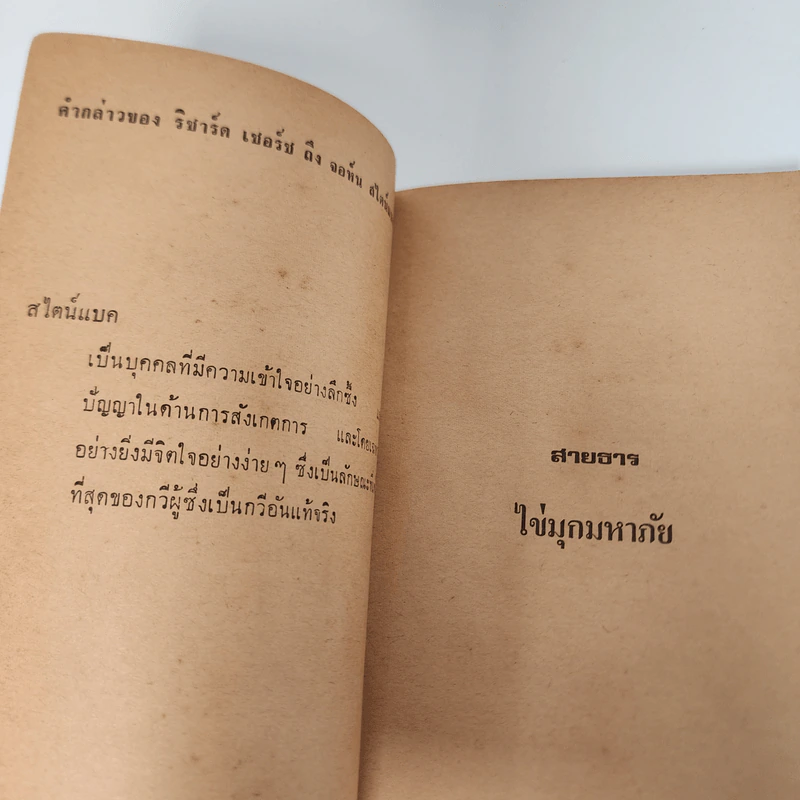 คำกล่าวของ ริชาร์ด เชอร์ช ถึง จอห์น
สไตน์แบค
เป็นบุคคลที่มีความเข้าใจอย่างลึกซึ้ง
ปัญญาในด้านการสังเกตการ
อย่างยิ่งมีจิตใจอย่างง่าย ๆ ซึ่งเป็นลักษณะ
ที่สุดของกวีผู้ซึ่งเป็นกวีอันแท้จริง
สายธาร
ไข่มุกมหาภัย